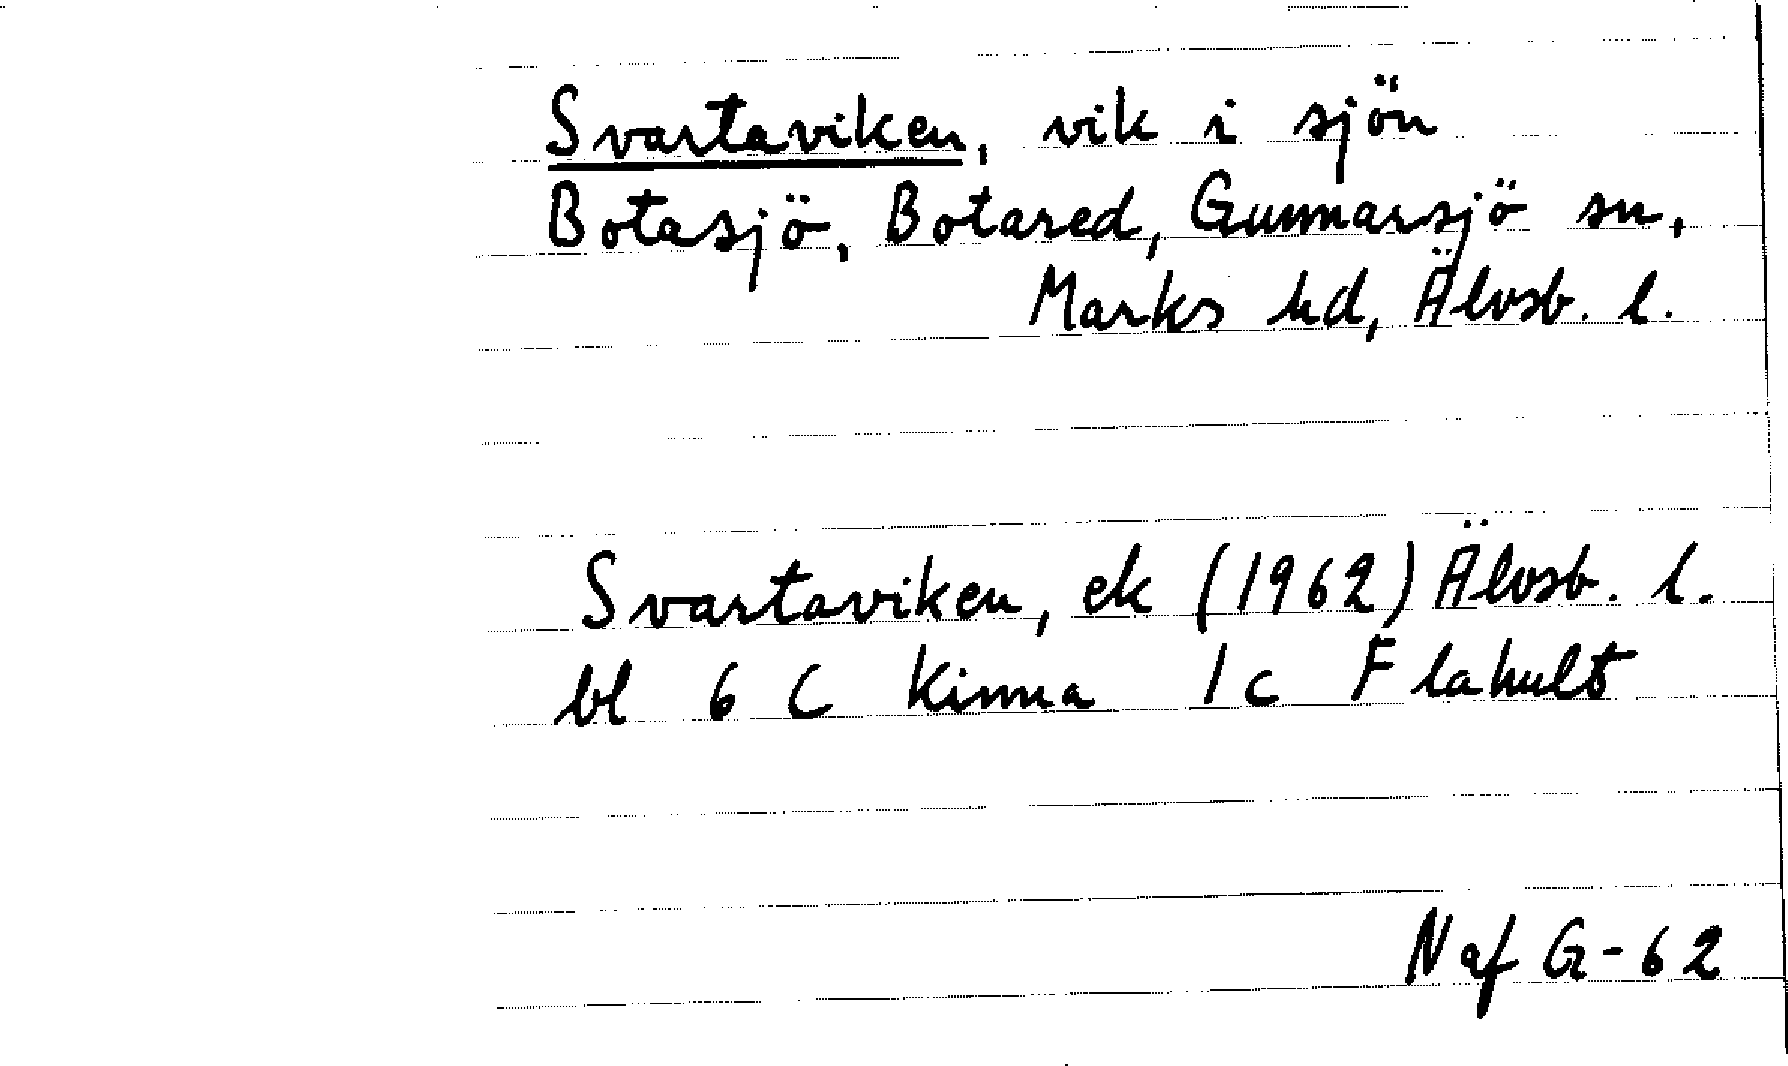 Svartaviken, vik i sjön
Botasjö, Botared, Gunnarsjö sn,
Marks hd, Älvsb. l.
Svartaviken, ek (1962) Älvsb. l.
bl 6 C Kinna 1 c Flahult
Naf G-62